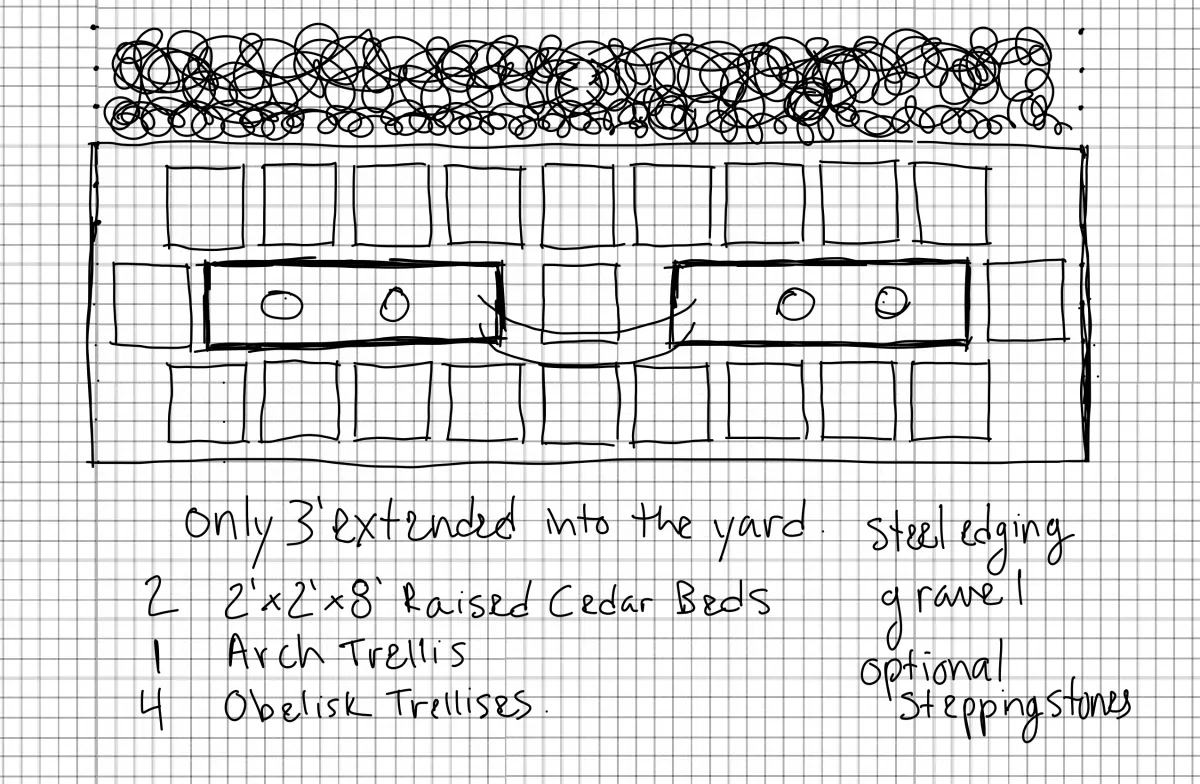 only 3' extended into the yard.
2 2'x2'x8' Raised Cedar Beds
1 Arch Trellis
4 Obelisk Trellises.
Steel edging
gravel
optional
Stepping stones